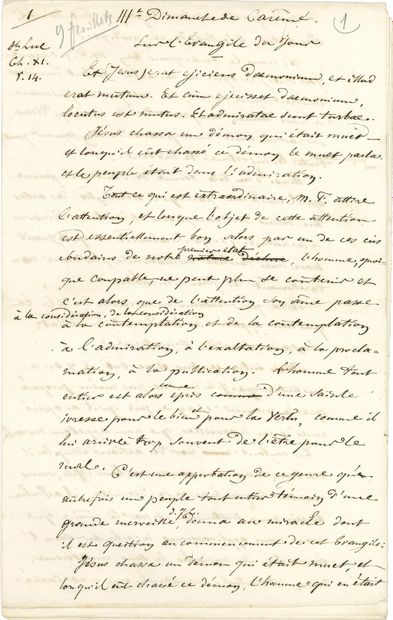 1
9 feuillets
IIIe Dimanche de Carême.
1
St Luc
Ch. XI.
v. 14.
Sur l'Evangile du Jour
Et Jesus erat ejiciens dæmonium, et illud
erat mutum. Et cum ejecisset dæmonium,
locutus est mutus. Et admiratæ sunt turbæ.
Jésus chassa un démon qui était muet
et lorqu'il eut chassé ce démon le muet parla
et le peuple etoit dans l'admiration.
Tout ce qui est extraordinaire, M. F. attire
l'attention, et lorsque l'objet de cette attention
est essentiellement bon, alors par un de ces
premier état
de notre nature déchue, l'homme, quoi
que coupable, ne peut plus se contenir et
c'est alors que de l'attention son âme passe
à la considération, de la considération
à la contemplation et de la contemplation
à l'admiration, à l'exaltation, à la procla-
mation, à la publication. L'homme tout
comme
entier est alors épris comme d'une sainte
ivresse pour le bien et pour la vertu, comme il
lui arrive trop souvent de l'être pour le
mal.
C'est une approbation de ce genre qu'
autrefois un peuple tout entier témoin d'une
grande merveille, donna au miracle dont
il est question au commencement de cet Evangile:
Jésus chassa un démon qui était muet et
lorqu'il eut chassé ce démon, l'homme qui en était